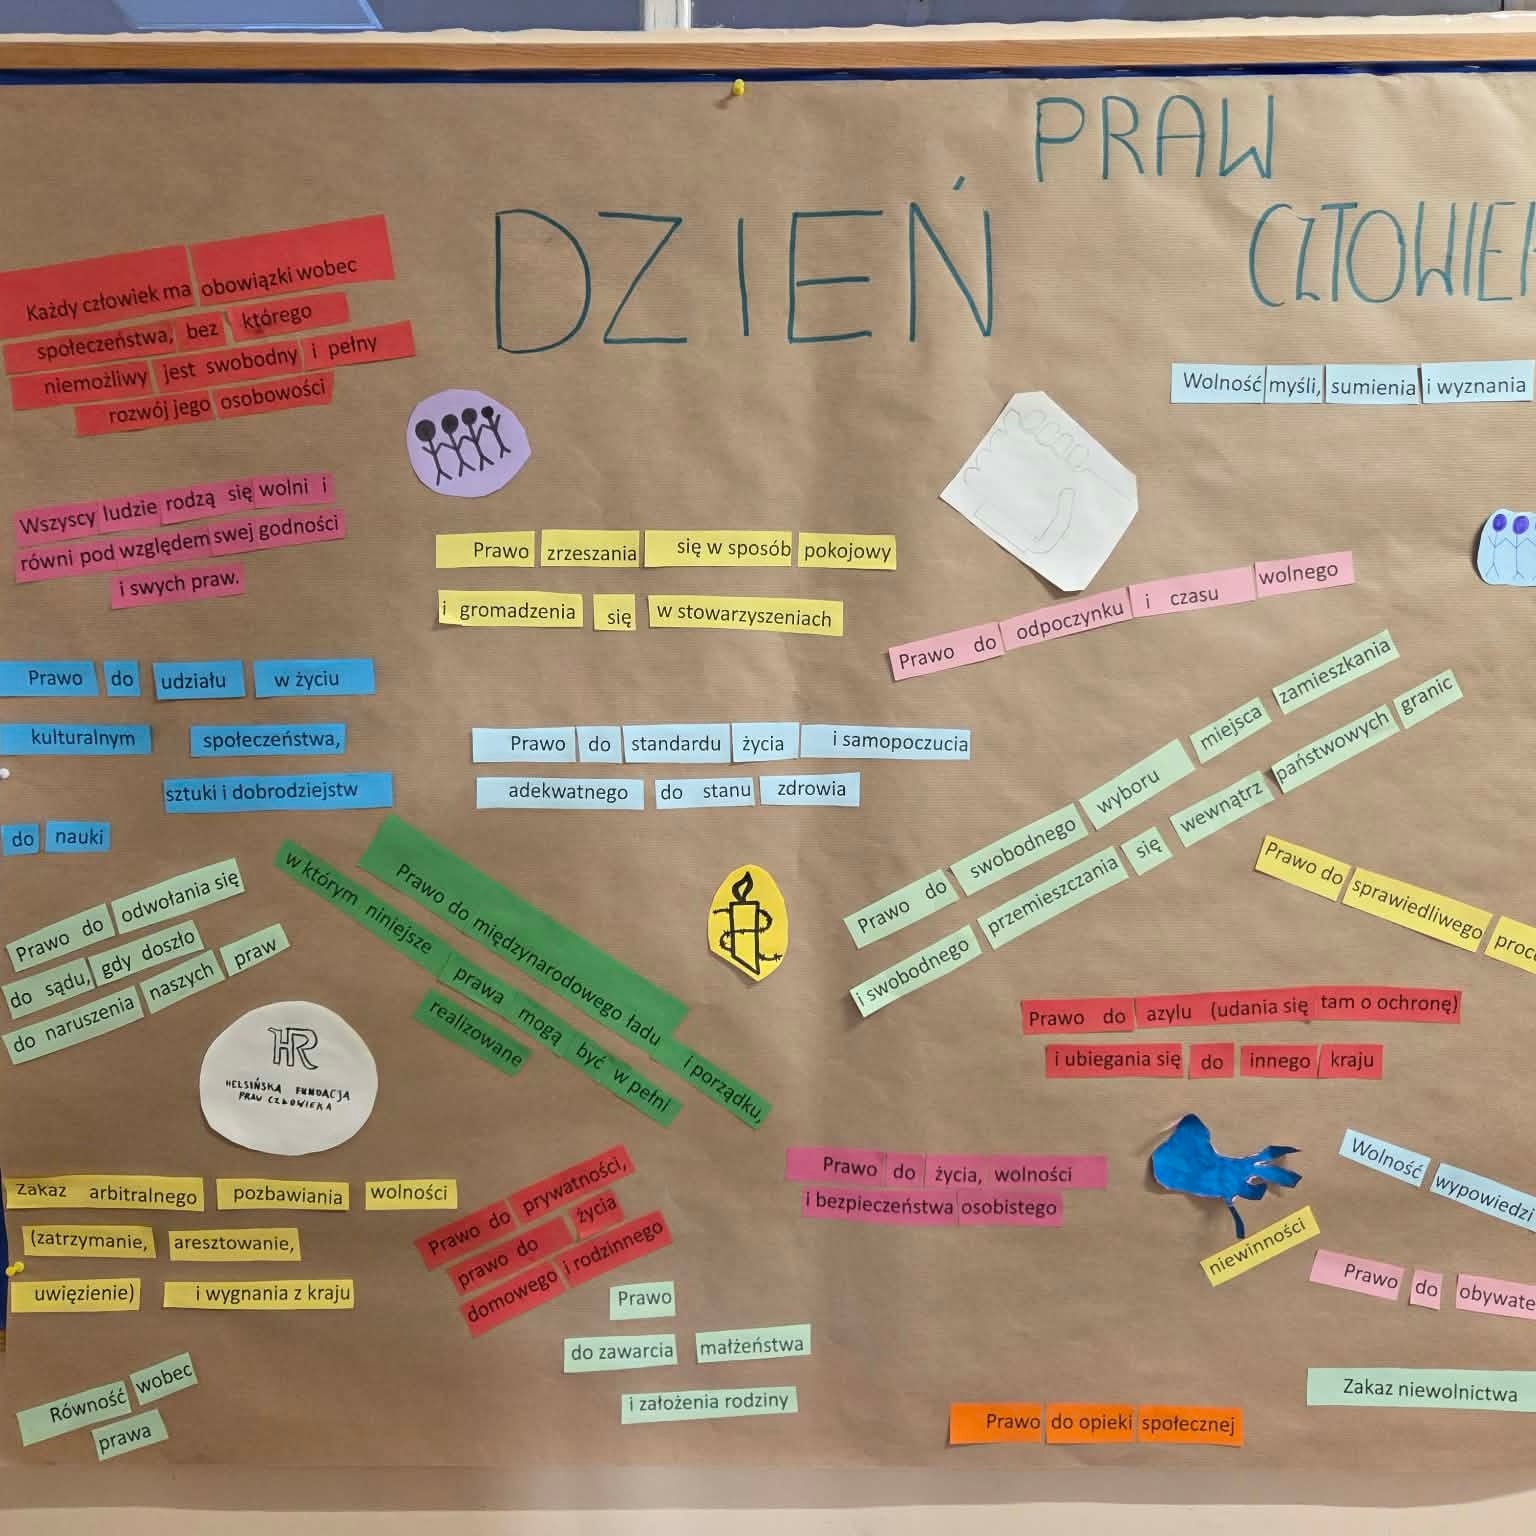 PRAW
DZIEŃ
Każdy człowiek ma obowiązki wobec
społeczeństwa, bez którego
niemożliwy jest swobodny i pełny
rozwój jego osobowości
Wolność myśli, sumienia i wyznania
Wszyscy ludzie rodzą się wolni i
równi pod względem swej godności
i swych praw.
Prawo zrzeszania się w sposób pokojowy
i gromadzenia się w stowarzyszeniach
Prawo do odpoczynku i czasu wolnego
Prawo do udziału w życiu
kulturalnym społeczeństwa,
sztuki i dobrodziejstw
do nauki
Prawo do standardu życia i samopoczucia
adekwatnego do stanu zdrowia
Prawo do swobodnego wyboru miejsca zamieszkania
i swobodnego przemieszczania się wewnątrz państwowych granic
Prawo do odwołania się
do sądu, gdy doszło
do naruszenia naszych praw
Prawo do międzynarodowego ładu i porządku,
w którym niniejsze prawa mogą być w pełni
realizowane
Prawo do sprawiedliwego
HR
HELSIŃSKA FUNDACJA
PRAW CZŁOWIEKA
Prawo do azylu (udania się tam o ochronę)
i ubiegania się do innego kraju
Zakaz arbitralnego pozbawiania wolności
(zatrzymanie, aresztowanie,
uwięzienie) i wygnania z kraju
Prawo do prywatności,
prawo do życia
domowego i rodzinnego
Prawo do życia, wolności
i bezpieczeństwa osobistego
Wolność wypowiedzi
niewinności
Prawo do
Prawo
do zawarcia małżeństwa
i założenia rodziny
Równość wobec
prawa
Zakaz niewolnictwa
Prawo do opieki społecznej